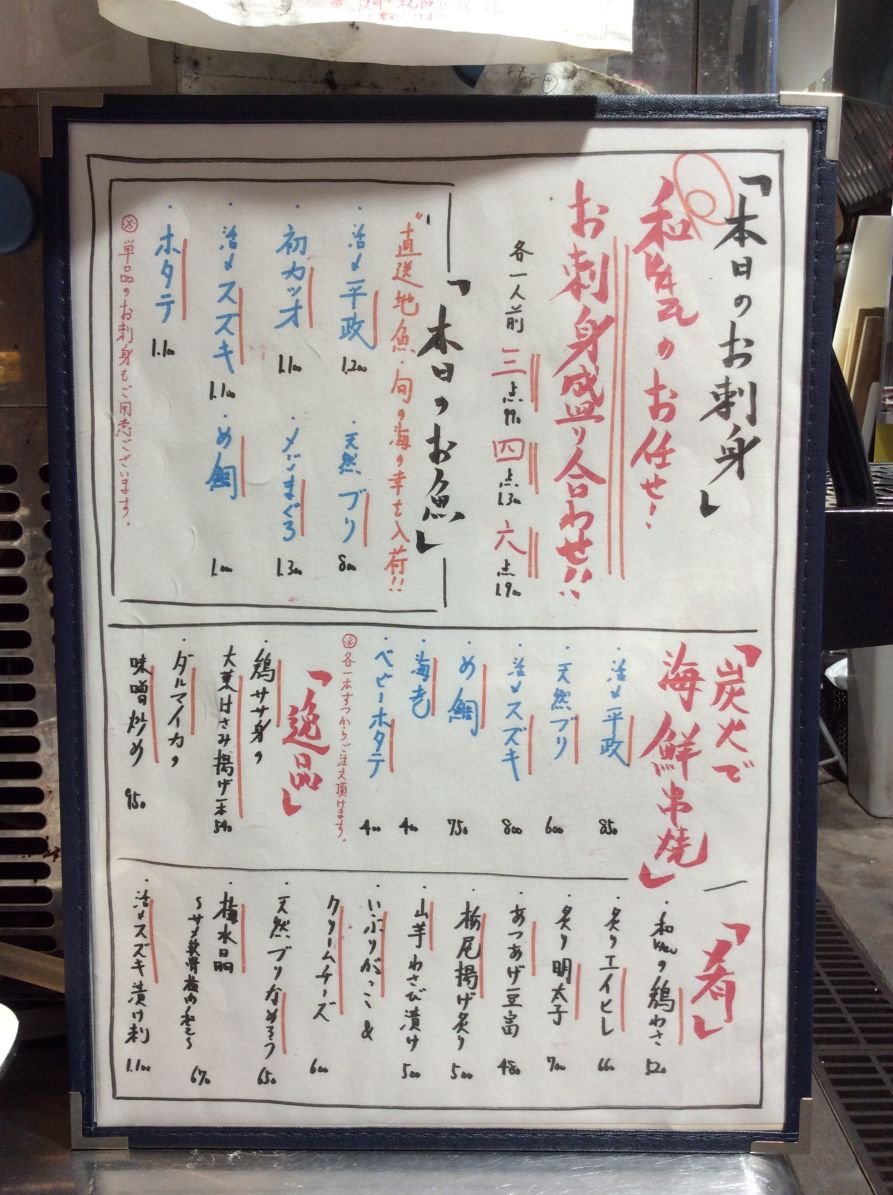 「本日のお刺身」
のお任せ!
お刺身盛り合わせ!!
各一人前 三点 四点 1.3 六点 1.9
「本日のお魚」
"直送地魚・旬の海の幸を入荷!!
・活〆平政 1.200
・天然ブリ 800
・初カツオ 1.100
・メジまぐろ 1.300
・活〆スズキ 1.100
・め鯛 1.000
・ホタテ 1.100
※単品のお刺身もご用意ございます。
「炭火で
海鮮串焼」
・活〆平政 850
・天然ブリ 600
・活〆スズキ 800
・め鯛 750
・海老 400
・ベビーホタテ 400
※各一本ずつからご注文頂けます。
「逸品」
・鶏ササ身の
大葉はさみ揚げ 一本 540
・ダルマイカの
味噌炒め 950
「肴」
・の鶏わさ 520
・炙りエイヒレ 660
・炙り明太子 700
・あつあげ豆富 480
・栃尾揚げ炙り 500
・山芋わさび漬け 500
・いぶりがっこ&
クリームチーズ 600
・天然ブリなめろう 650
・梅水晶
〜サメ軟骨梅肉和え〜 670
・活〆スズキ漬け刺 1.100